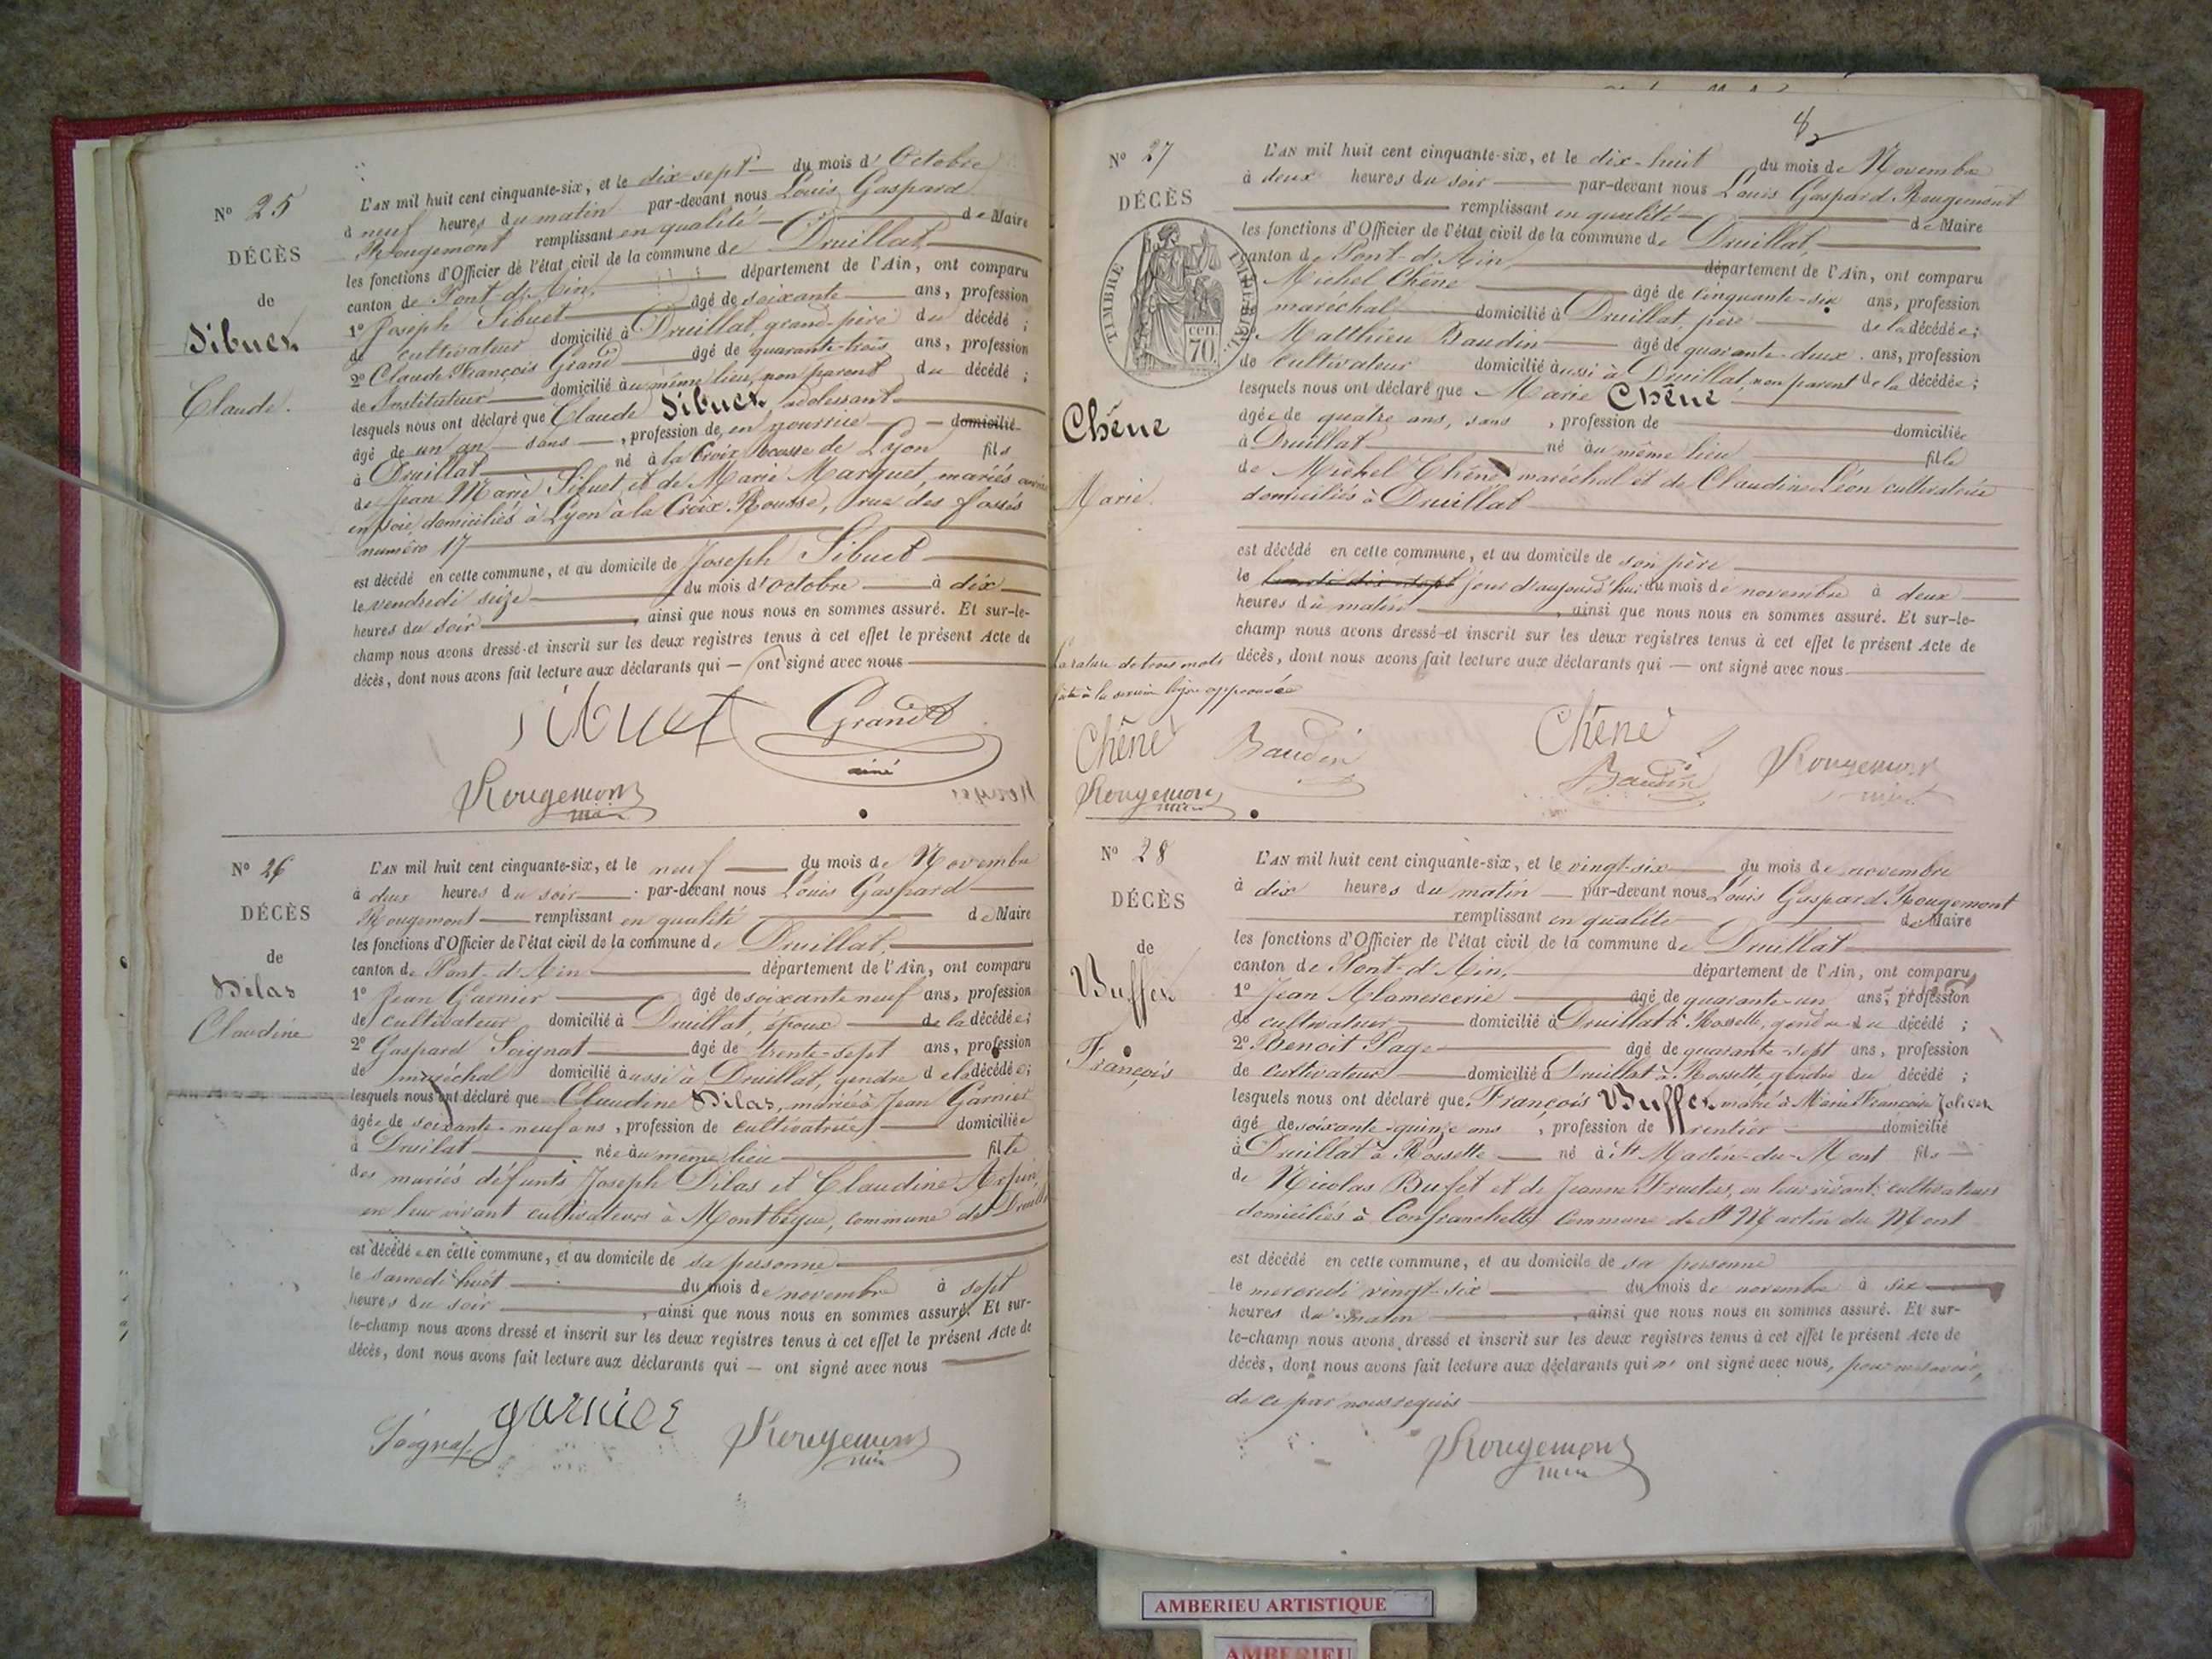 N° 25
DÉCÈS
de
Sibuet
Claude.
L'AN mil huit cent cinquante-six, et le dix-sept du mois d'Octobre
à neuf heures du matin par-devant nous Louis Gaspard
Rougemont remplissant en qualité de Maire
les fonctions d'Officier de l'état civil de la commune de Druillat
canton de Pont-d'Ain, département de l'Ain, ont comparu
1° Joseph Sibuet âgé de soixante ans, profession
de cultivateur domicilié à Druillat, grand-père du décédé ;
2° Claude François Grand âgé de quarante-trois ans, profession
de Instituteur domicilié au même lieu, non parent du décédé ;
lesquels nous ont déclaré que Claude Sibuet,
âgé de un an sans , profession de, en nourrice domicilié
à Druillat né à la Croix Rousse de Lyon fils
de Jean Marie Sibuet et de Marie Marquet, mariés
en soie, domiciliés à Lyon à la Croix Rousse, rue des fossés
numéro 17
est décédé en cette commune, et au domicile de Joseph Sibuet
le vendredi seize du mois d'octobre à dix
heures du soir , ainsi que nous nous en sommes assuré. Et sur-le-
champ nous avons dressé et inscrit sur les deux registres tenus à cet effet le présent Acte de
décès, dont nous avons fait lecture aux déclarants qui — ont signé avec nous
Sibuet Grand
ainé
Rougemont
N° 26
DÉCÈS
de
Dilas
Claudine
L'AN mil huit cent cinquante-six, et le neuf du mois de Novembre
à deux heures du soir par-devant nous Louis Gaspard
Rougemont remplissant en qualité de Maire
les fonctions d'Officier de l'état civil de la commune de Druillat,
canton de Pont-d'Ain département de l'Ain, ont comparu
1° Jean Garnier âgé de soixante neuf ans, profession
de cultivateur domicilié à Druillat, époux de la décédée;
2° Gaspard Soignat âgé de trente-sept ans, profession
de maréchal domicilié aussi à Druillat, gendre de la décédée;
lesquels nous ont déclaré que Claudine Dilas, mariée à Jean Garnier
âgée de soixante-neuf ans, profession de cultivatrice domiciliée
à Druillat née au même lieu fille
des mariés défunts Joseph Dilas et Claudine
en leur vivant cultivateurs à Montbègue, commune de Druillat
est décédée en cette commune, et au domicile de sa personne
le samedi huit du mois de novembre à sept
heures du soir , ainsi que nous nous en sommes assuré. Et sur-
le-champ nous avons dressé et inscrit sur les deux registres tenus à cet effet le présent Acte de
décès, dont nous avons fait lecture aux déclarants qui — ont signé avec nous
Soignat garnier Rougemont
N° 27
DÉCÈS
TIMBRE IMPÉRIAL
70 cen.
Chêne
Marie.
L'AN mil huit cent cinquante-six, et le dix-huit du mois de Novembre
à deux heures du soir par-devant nous Louis Gaspard Rougemont
remplissant en qualité de Maire
les fonctions d'Officier de l'état civil de la commune de Druillat,
canton de Pont-d'Ain, département de l'Ain, ont comparu
Michel Chêne âgé de cinquante-six ans, profession
maréchal domicilié à Druillat, père de la décédée;
Matthieu Baudin âgé de quarante-deux ans, profession
de cultivateur domicilié aussi à Druillat, non parent de la décédée;
lesquels nous ont déclaré que Marie Chêne
âgée de quatre ans, sans , profession de domiciliée
à Druillat né au même lieu fille
de Michel Chêne maréchal et de Claudine Léon cultivatrice
domiciliés à Druillat
est décédé en cette commune, et au domicile de son père
le lundi dix-sept jour d'aujourd'hui du mois de novembre à deux
heures du matin , ainsi que nous nous en sommes assuré. Et sur-le-
champ nous avons dressé et inscrit sur les deux registres tenus à cet effet le présent Acte de
décès, dont nous avons fait lecture aux déclarants qui — ont signé avec nous
La rature de trois mots
faite à la ligne approuvée
Chêne Baudin Chêne
Rougemont Baudin Rougemont
N° 28
DÉCÈS
de
Buffet
François
L'AN mil huit cent cinquante-six, et le vingt-six du mois de novembre
à dix heures du matin par-devant nous Louis Gaspard Rougemont
remplissant en qualité de Maire
les fonctions d'Officier de l'état civil de la commune de Druillat
canton de Pont-d'Ain, département de l'Ain, ont comparu
1° Jean Alamercerie âgé de quarante-un ans, profession
de cultivateur domicilié à Druillat à Rossette, gendre du décédé ;
2° Benoit Page âgé de quarante-sept ans, profession
de cultivateur domicilié à Druillat à Rossette, gendre du décédé ;
lesquels nous ont déclaré que François Buffet marié à Marie Françoise
âgé de soixante-quinze ans , profession de rentier domicilié
à Druillat à Rossette né à St Martin-du-Mont fils
de Nicolas Bufet et de Jeanne en leur vivant cultivateurs
domiciliés à Confranchette Commune de St Martin du Mont
est décédé en cette commune, et au domicile de sa personne
le mercredi vingt-six du mois de novembre à six
heures du matin , ainsi que nous nous en sommes assuré. Et sur-
le-champ nous avons dressé et inscrit sur les deux registres tenus à cet effet le présent Acte de
décès, dont nous avons fait lecture aux déclarants qui n'ont signé avec nous, pour ne savoir,
de ce par nous requis
Rougemont
AMBERIEU ARTISTIQUE
AMBERIEU